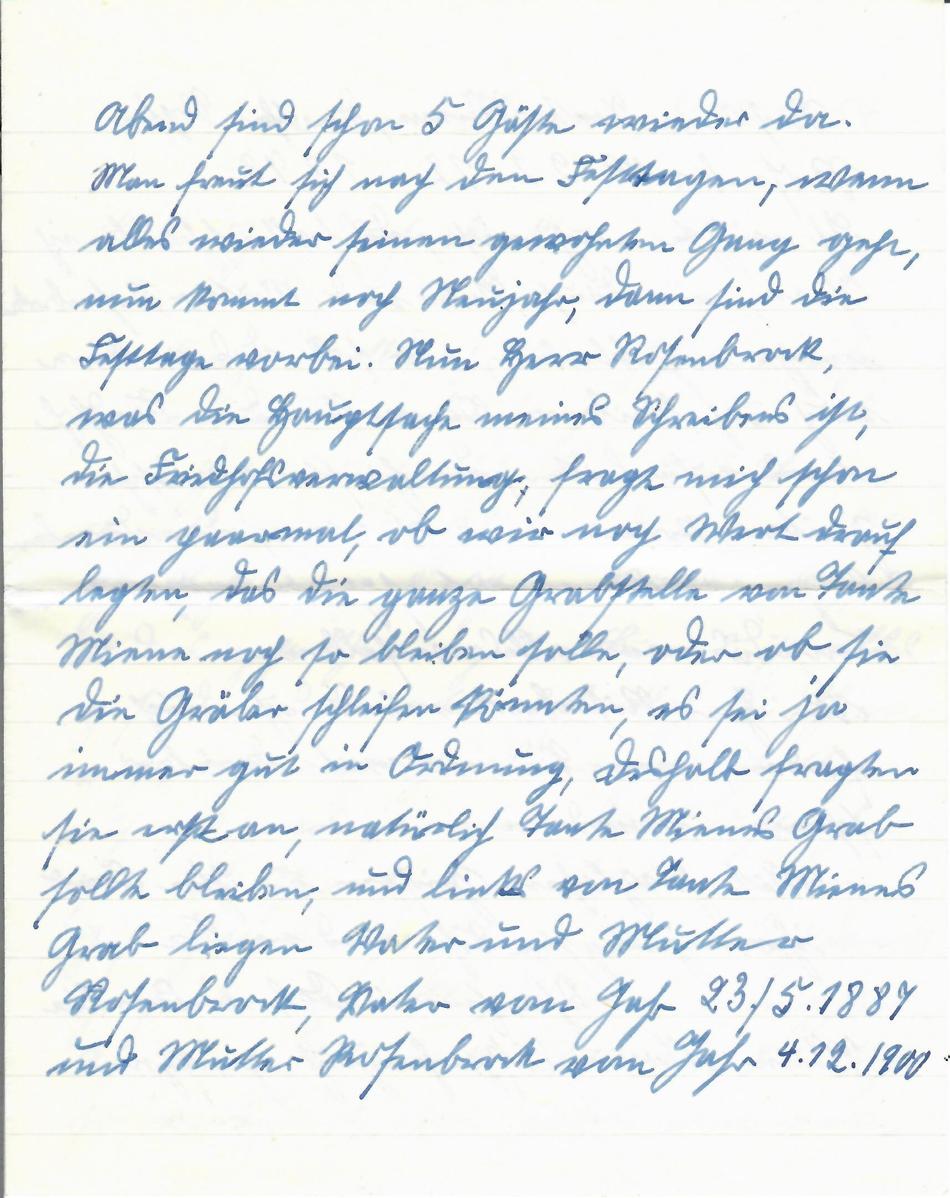 Abend sind schon 5 Gäste wieder da.
Man freut sich nach den Festtagen, wenn
alles wieder seinen gewohnten Gang geht,
nun kommt noch Neujahr, dann sind die
Festtage vorbei. Nun Herr Rosenbrock,
was die Hauptsache meines Schreibens ist,
die Friedhofsverwaltung, fragt mich schon
ein paarmal, ob wir noch Wert drauf
legten, das die ganze Grabstelle von Tante
Miene noch so bleiben solle, oder ob sie
die Gräber schleifen könnten, es sei ja
immer gut in Ordnung, deshalb fragten
sie erst an, natürlich Tante Mienes Grab
sollte bleiben, und links von Tante Mienes
Grab liegen Vater und Mutter
Rosenbrock, Vater vom Jahr 23/5.1887
und Mutter Rosenbrock vom Jahr 4.12.1900